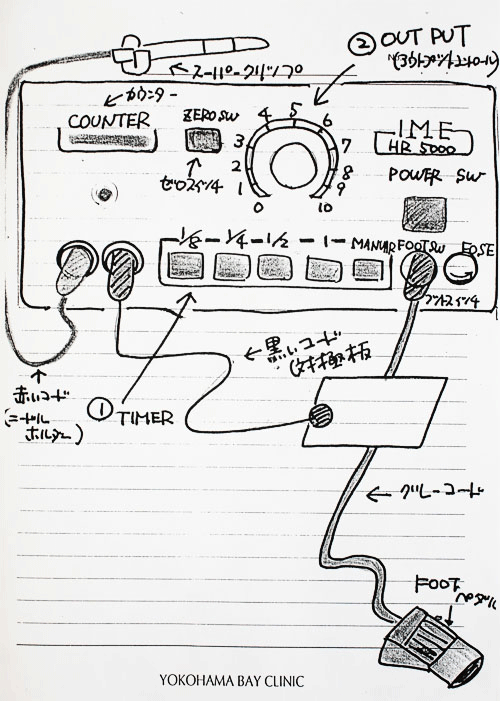 ② OUT PUT
(アウトプットコントロール)
スーパークリップ
カウンター
COUNTER
ZERO SW
ゼロスイッチ
0 1 2 3 4 5 6 7 8 9 10
IME
HR 5000
POWER SW
1/8 - 1/4 - 1/2 - 1 - MANUAR
FOOT SW
FOSE
フットスイッチ
黒いコード
対極板
赤いコード
(ニードル
ホルダー)
① TIMER
グレーコード
FOOT
ペダル
YOKOHAMA BAY CLINIC